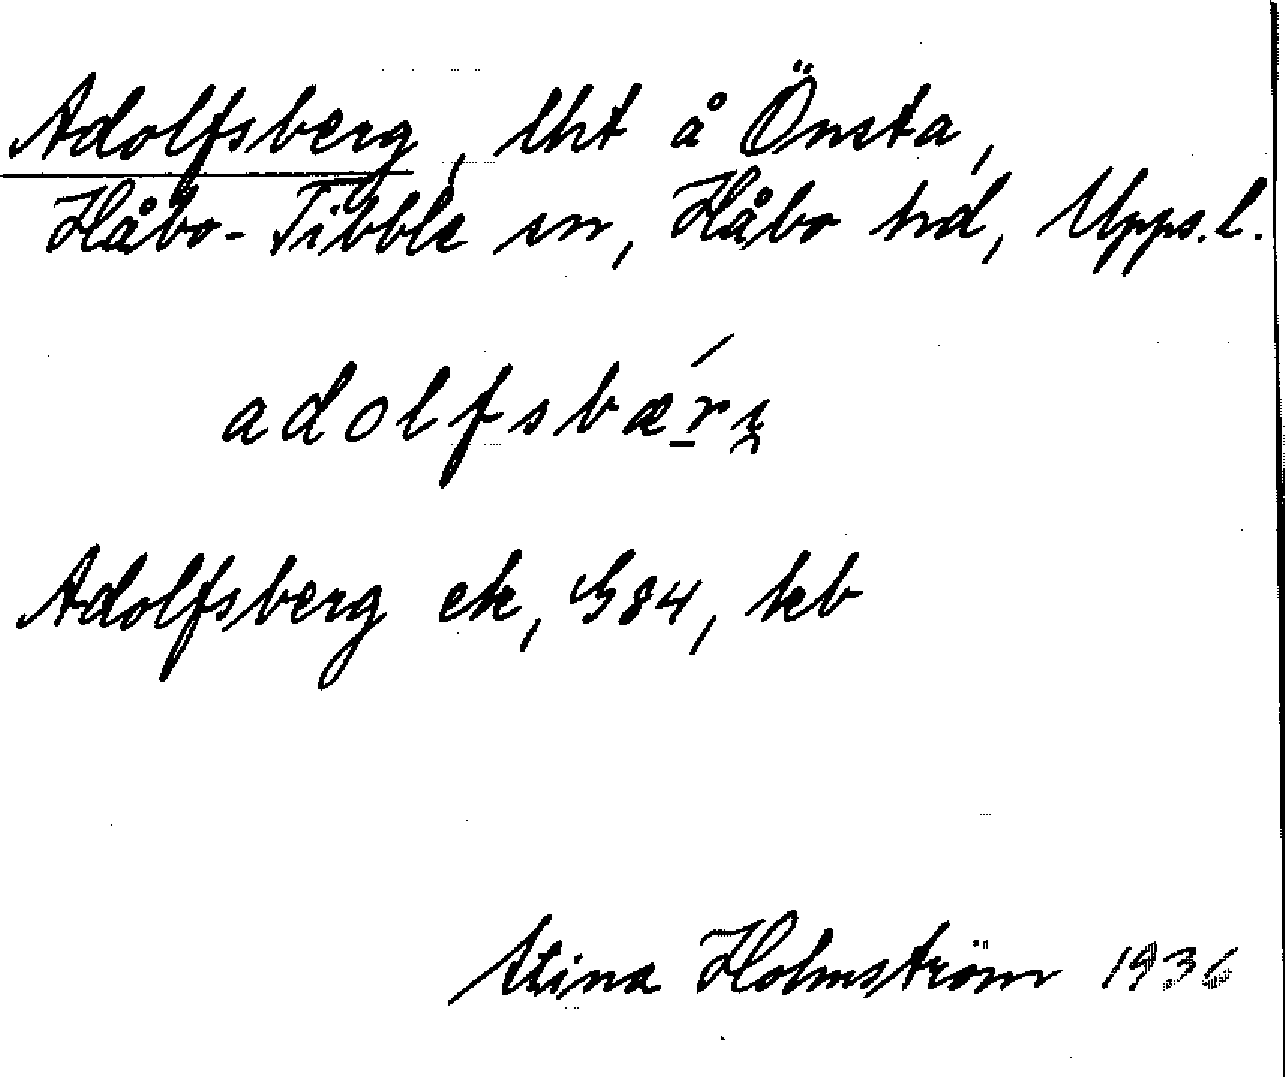 Adolfsberg, lht å Önsta,
Håbo-Tibble sn, Håbo hd, Upps.l.
adolfsbærj
Adolfsberg ek, G84, kb
Stina Holmström 1936